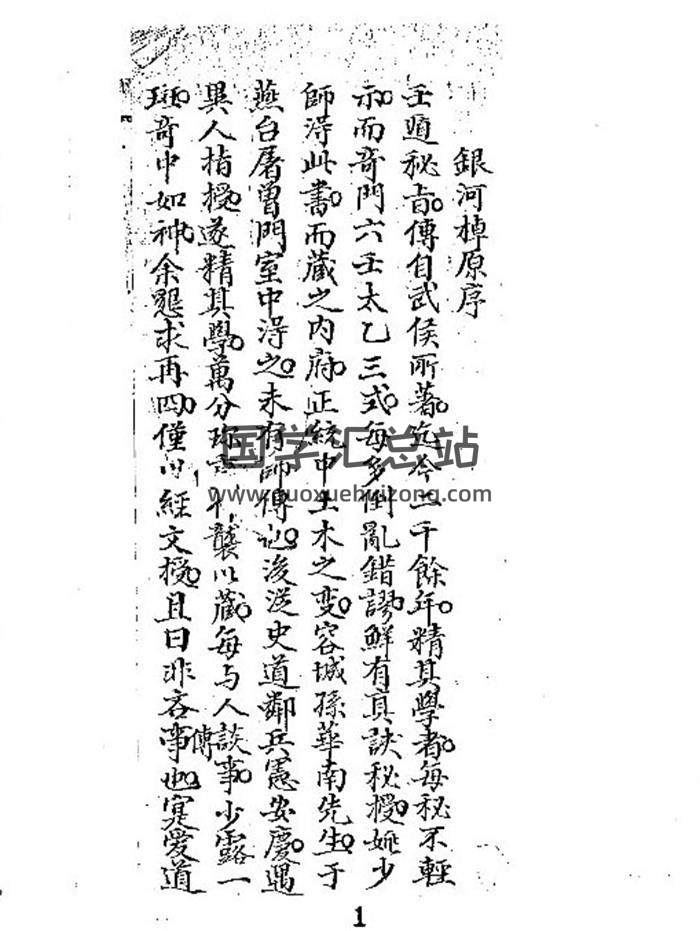 銀河棹原序
壬遁秘旨傳自武侯所著迄今一千餘年精其學者每秘不輕
示而奇門六壬太乙三式每多倒亂錯謬鮮有真訣秘授姚少
師淂此書而藏之内府正統中土木之变容城孫華南先生于
燕台屠曽門室中淂之未有師傳也後送史道鄰兵憲安慶遇
異人指授遂精其學萬分珎襲以藏每与人談事少露一
班奇中如神余懇求再四僅以經文授且曰非吝傳事也寔愛道
国学汇总站
www.guoxuehuizong.com
1